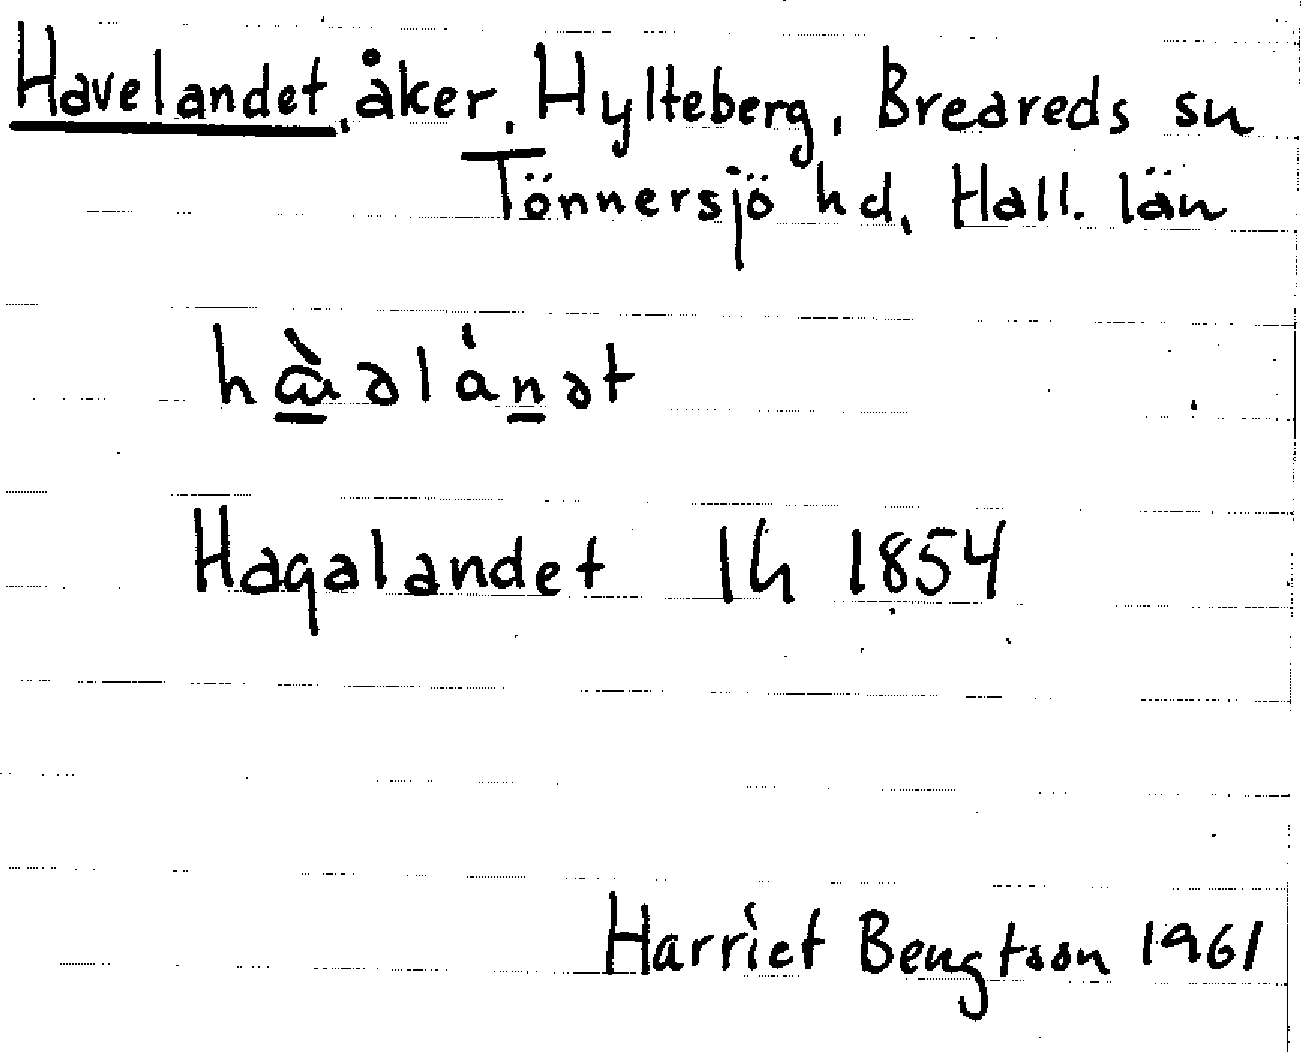 Havelandet, åker, Hylteberg, Breareds sn
Tönnersjö hd, Hall. län
Hagalandet lh 1854
Harriet Bengtson 1961